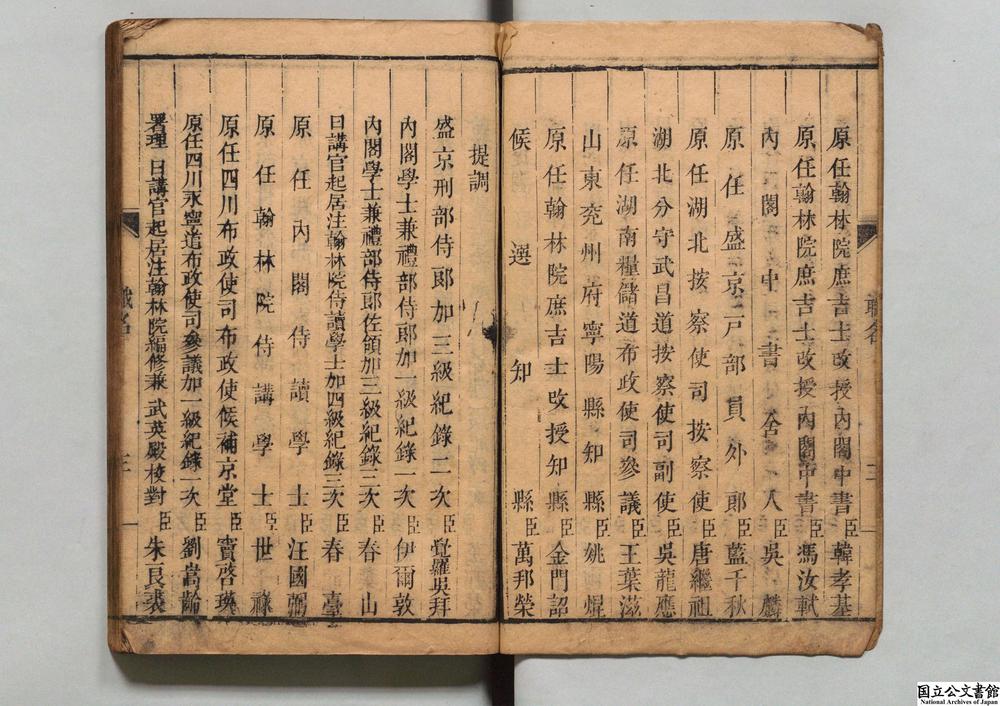 原任翰林院庶吉士改授內閣中書臣韓孝基
原任翰林院庶吉士改授內閣中書臣馮汝軾
內閣中書舍人吳麟
原任盛京戶部員外郎臣藍千秋
原任湖北按察使司按察使臣唐繼祖
湖北分守武昌道按察使司副使臣吳龍應
原任湖南糧儲道布政使司參議臣王葉滋
山東兖州府寧陽縣知縣臣姚焜
原任翰林院庶吉士改授知縣臣金門詔
候選知縣臣萬邦榮
職名
三
提調
盛京刑部侍郎加三級紀錄二次臣覺羅吳拜
內閣學士兼禮部侍郎加一級紀錄一次臣伊爾敦
內閣學士兼禮部侍郎佐領加三級紀錄二次臣春山
日講官起居注翰林院侍讀學士加四級紀錄三次臣春臺
原任內閣侍讀學士臣汪國弼
原任翰林院侍講學士臣世祿
原任四川布政使司布政使候補京堂臣竇啓瑛
原任四川永寧道布政使司參議加一級紀錄一次臣劉嵩齡
署理日講官起居注翰林院編修兼武英殿校對臣朱良裘
職名
三
国立公文書館
National Archives of Japan